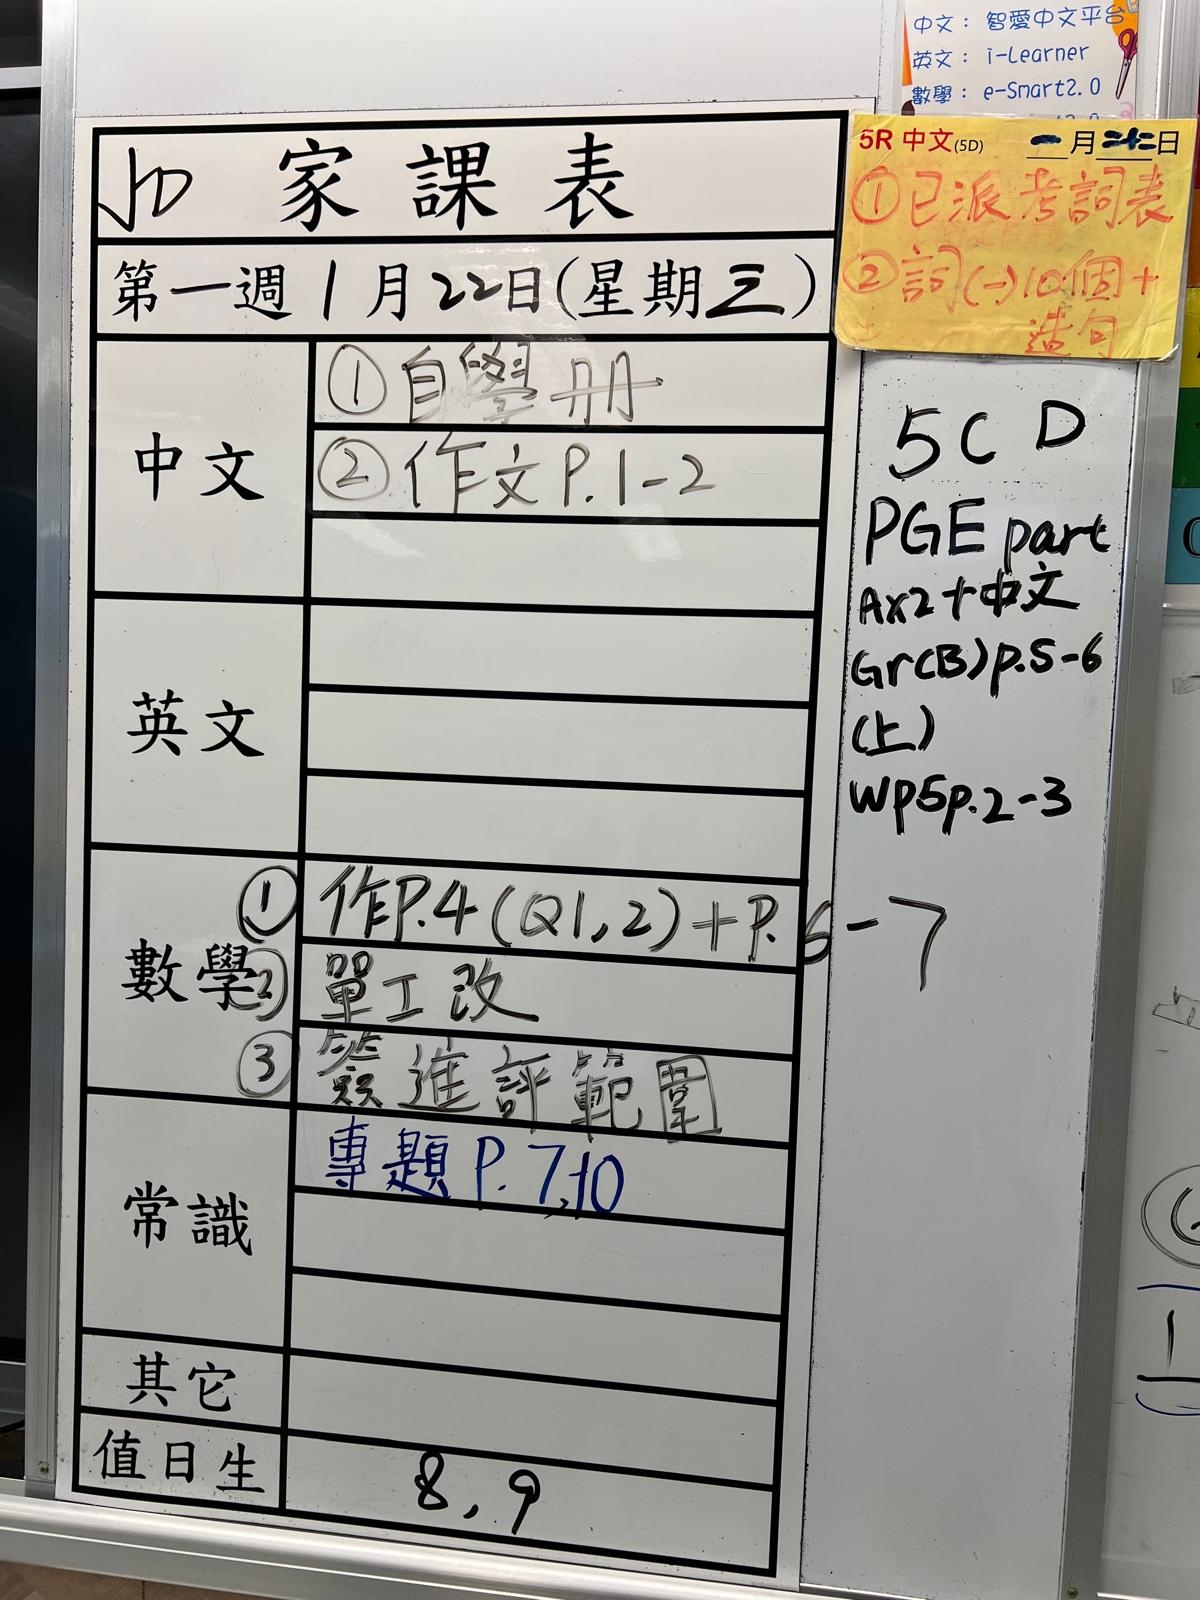 中文： 智愛中文平台
英文： i-Learner
數學： e-Smart2.0
5R 中文(5D) 一月二十二日
①已派考詞表
②詞(一)10個+
造句
5D 家課表
第一週 1月22日(星期三)
中文
①自學册
②作文P.1-2
英文
數學
①作P.4(Q1,2)+P.6-7
②單工改
③簽進評範圍
常識
專題P.7,10
其它
值日生
8,9
5C D
PGE part
Ax2+中文
Gr(B)p.5-6
(上)
WP5p.2-3